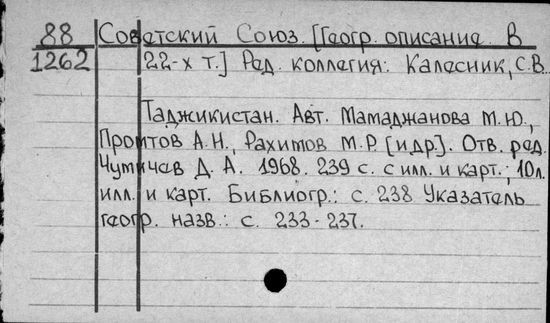 88 Советский Союз. [Геогр. описание. В
1262 22-х т.] Ред. коллегия: Калесник, С.В...
Таджикистан. Авт. Мамаджанова М.Ю.,
Пронтов А.Н., Рахимов М.Р. [и др]. Отв. ред.
Чумичев Д. А. 1968. 239 с. с илл. и карт.; 10л.
илл. и карт. Библиогр.: с. 238 Указатель
геогр. назв.: с. 233-237.